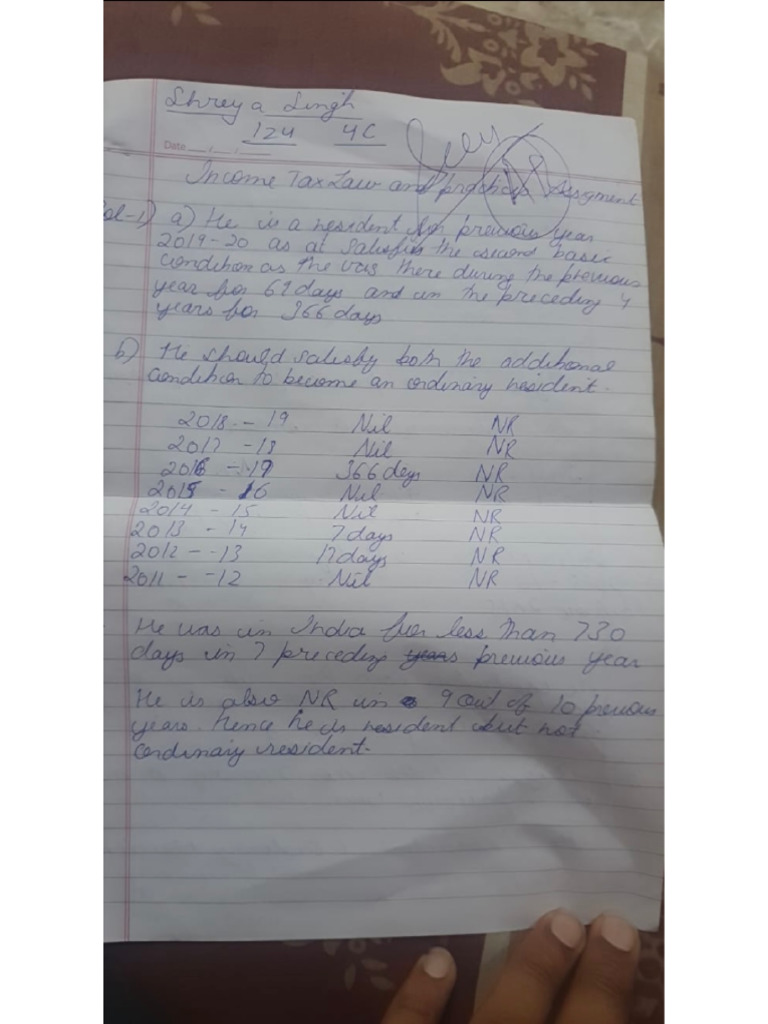 Shreya Singh
124 4C
Date
Income Tax Law and practices Assigment
a) He is a resident for previous year
2019-20 as at satisfies the second basic
condition as the was there during the previous
year for 61 days and in the preceding 4
years for 366 days
b) He should satisby both the additional
condition to become an ordinary resident.
2018 - 19 Nil NR
2017 - 18 Nil NR
2016 - 17 366 days NR
2015 - 16 Nil NR
2014 - 15 Nil NR
2013 - 14 7 days NR
2012 - 13 17 days NR
2011 - 12 Nil NR
He was in India for less than 730
days in 7 preceding previous year
He is also NR in 9 out of 10 previous
years. hence he is resident but not
ordinary resident.